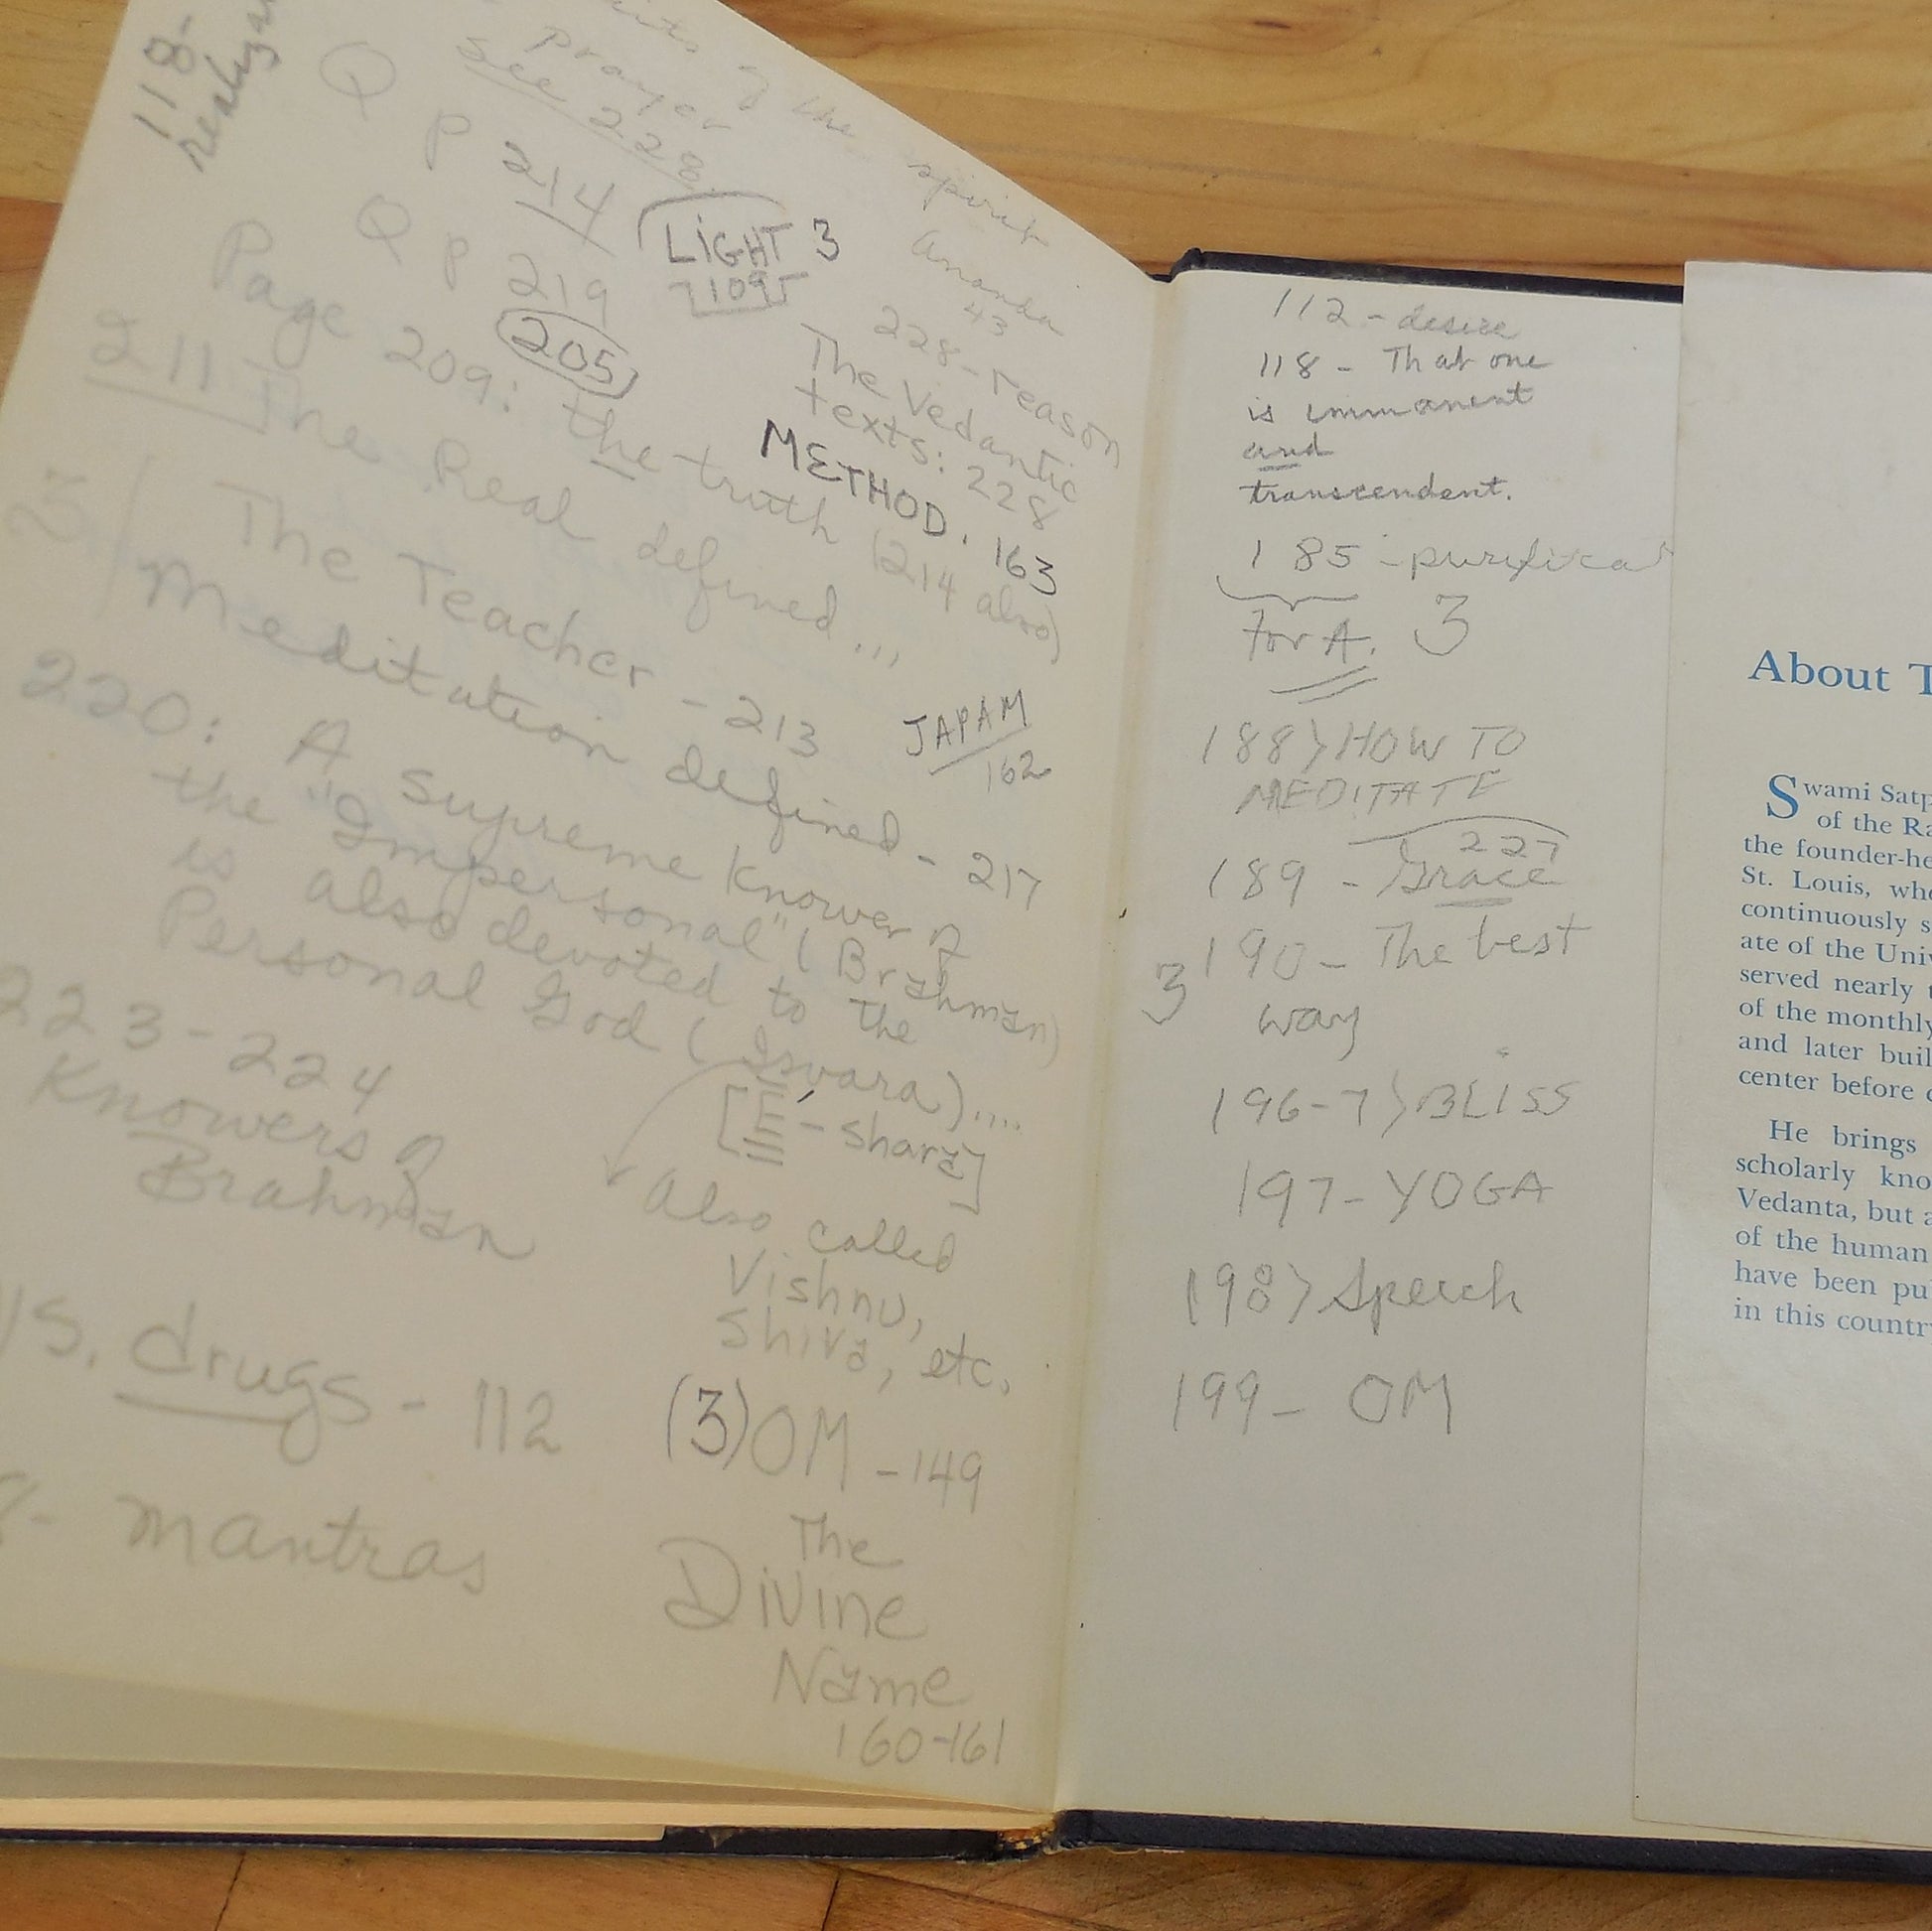 118-
of the spirit
prayer
see 228
Ananda
43
Q p 214
LiGHT 3
109
Q p 219
205
228-reason
The Vedantic
texts: 228
Page 209: the truth (214 also)
METHOD. 163
211 The Real defined...
3
The Teacher - 213
Meditation defined - 217
JAPAM
162
220: A supreme knower of
the "Impersonal" (Brahman)
is also devoted to the
Personal God (Isvara)....
[E-shara]
Also called
Vishnu,
Shiva, etc.
223-224
Knowers of
Brahman
drugs - 112
(3) OM - 149
mantras
The
Divine
Name
160-161
112 - desire
118 - That one
is immanent
and
transcendent.
185 - purifica
For A. 3
188> HOW TO
MEDITATE
227
189 - Grace
3 190 - The best
way
196-7> BLISS
197- YOGA
198> Speech
199- OM
About T
Swami Satp
of the Ra
the founder-he
St. Louis, who
continuously s
ate of the Univ
served nearly t
of the monthly
and later buil
center before
He brings
scholarly kno
Vedanta, but a
of the human
have been pu
in this country